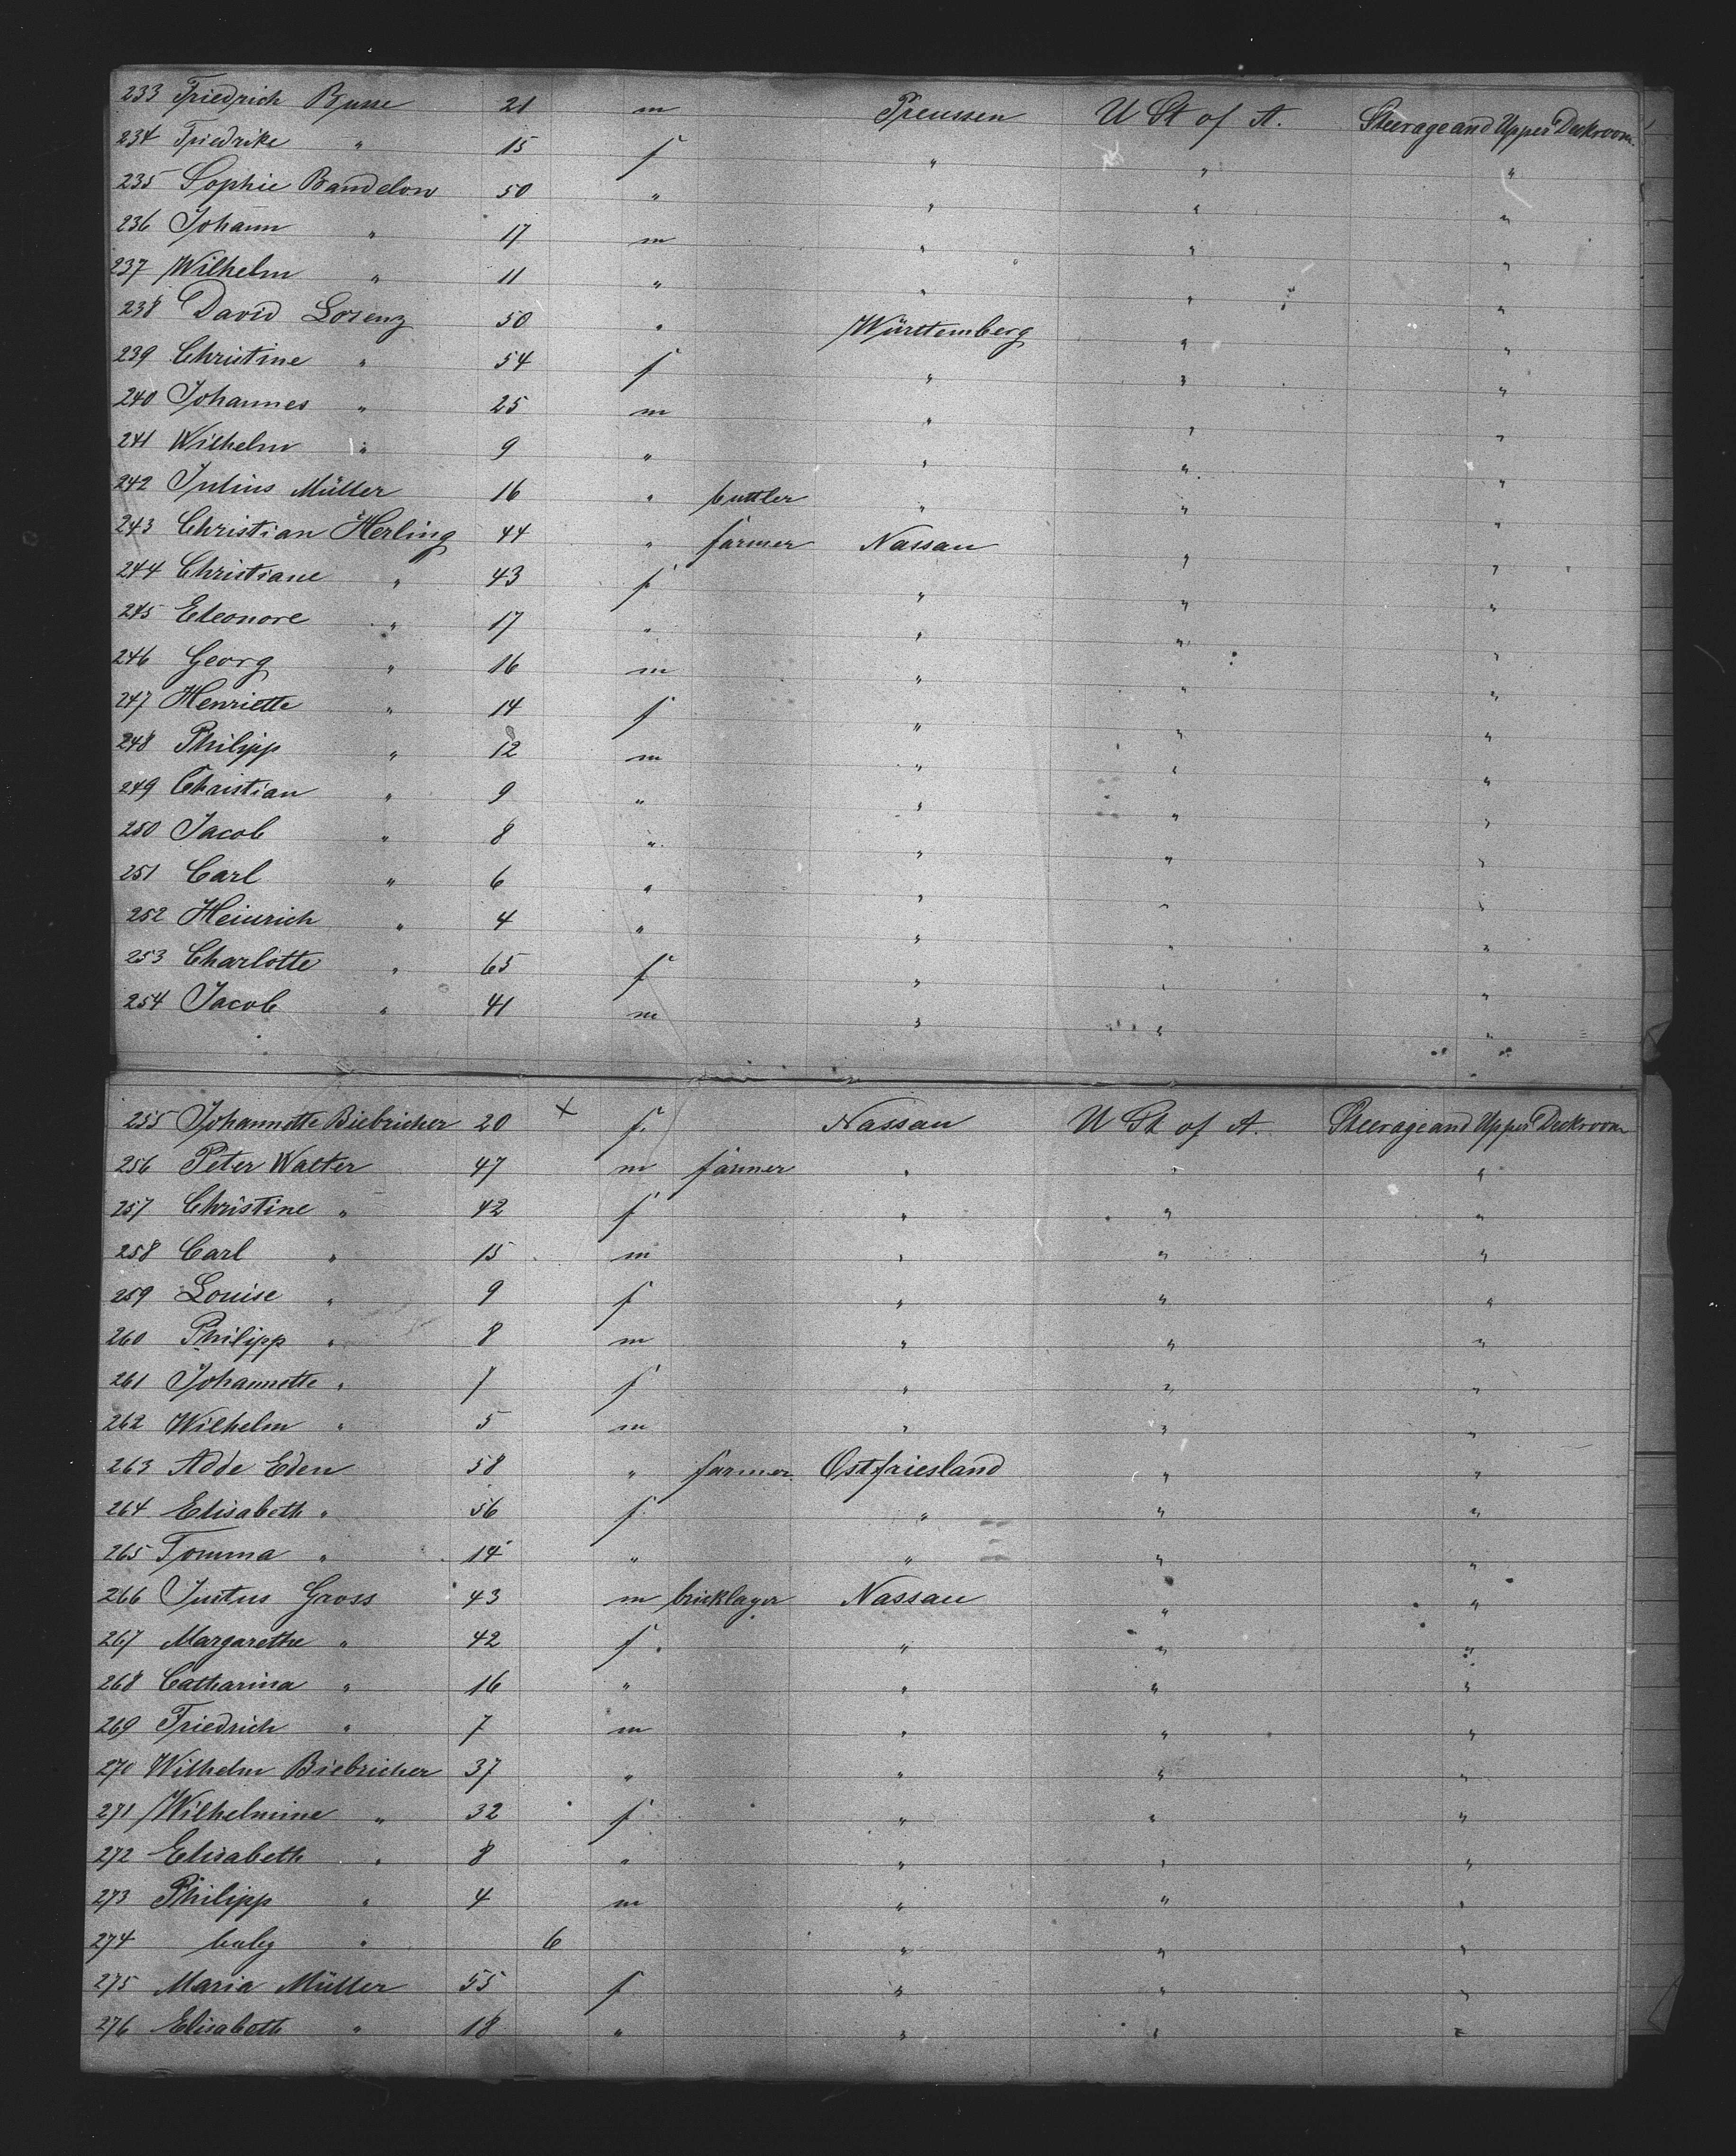 233 Friedrich Busse 21 m Preussen U St of A. Steerage and Upper Deckroom
234 Friedrike " 15 f " " "
235 Sophie Bandelow 50 " " " "
236 Johann " 17 m " " "
237 Wilhelm " 11 " " " "
238 David Lorenz 50 " Württemberg " "
239 Christine " 54 f " " "
240 Johannes " 25 m " " "
241 Wilhelm " 9 " " " "
242 Julius Müller 16 " buttler " " "
243 Christian Herling 44 " farmer Nassau " "
244 Christiane " 43 f " " "
245 Eleonore " 17 " " " "
246 Georg " 16 m " " "
247 Henriette " 14 f " " "
248 Philipp " 12 m " " "
249 Christian " 9 " " " "
250 Jacob " 8 " " " "
251 Carl " 6 " " " "
252 Heinrich " 4 " " " "
253 Charlotte " 65 f " " "
254 Jacob " 41 m " " "
255 Johannette Biebricher 20 x f. Nassau U St of A. Steerage and Upper Deckroom
256 Peter Walter 47 m farmer " " "
257 Christine " 42 f " " "
258 Carl " 15 m " " "
259 Louise " 9 f " " "
260 Philipp " 8 m " " "
261 Johannette " 7 f " " "
262 Wilhelm " 5 m " " "
263 Adde Eden 58 " farmer Ostfriesland " "
264 Elisabeth " 56 f " " "
265 Tomma " 14 " " " "
266 Justus Gross 43 m bricklayer Nassau " "
267 Margarethe " 42 f. " " "
268 Catharina " 16 " " " "
269 Friedrich " 7 m " " "
270 Wilhelm Biebricher 37 " " " "
271 Wilhelmine " 32 f " " "
272 Elisabeth " 8 " " " "
273 Philipp " 4 m " " "
274 baby " 6 " " "
275 Maria Müller 55 f " " "
276 Elisabeth " 18 " " " "